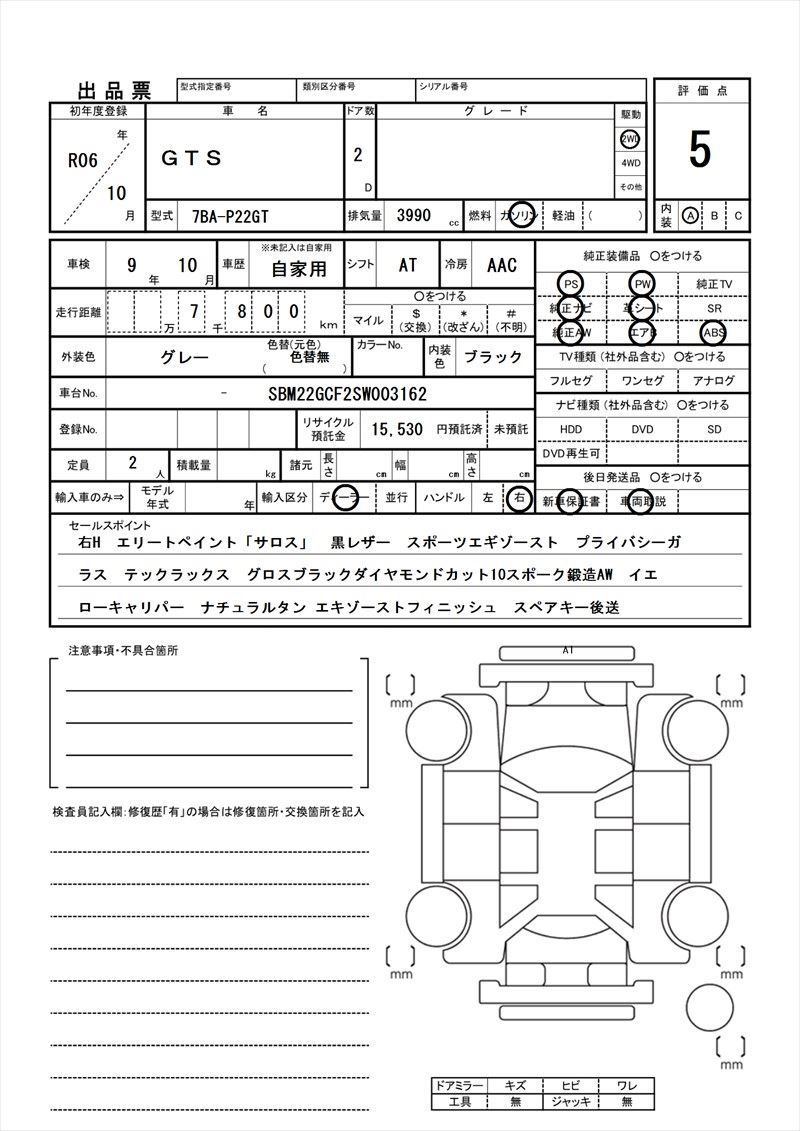 出品票 型式指定番号 類別区分番号 シリアル番号 評価点
初年度登録 車名 ドア数 グレード 駆動
R06 年 10 月 GTS 2 D 2WD 4WD その他 5
型式 7BA-P22GT 排気量 3990 cc 燃料 ガソリン 軽油 ( ) 内装 A B C
車検 9 年 10 月 車歴 ※未記入は自家用 自家用 シフト AT 冷房 AAC 純正装備品 〇をつける
PS PW 純正TV
走行距離 万 7 千 8 0 0 km 〇をつける 純正ナビ 革シート SR
マイル $ (交換) * (改ざん) # (不明) 純正AW エアB ABS
外装色 グレー 色替(元色) 色替無 ( ) カラーNo. 内装色 ブラック TV種類(社外品含む) 〇をつける
フルセグ ワンセグ アナログ
車台No. - SBM22GCF2SW003162 ナビ種類(社外品含む) 〇をつける
登録No. リサイクル預託金 15,530 円預託済 未預託 HDD DVD SD
DVD再生可
定員 2 人 積載量 kg 諸元 長さ cm 幅 cm 高さ cm 後日発送品 〇をつける
輸入車のみ⇒ モデル年式 年 輸入区分 ディーラー 並行 ハンドル 左 右 新車保証書 車両取説
セールスポイント
右H エリートペイント「サロス」 黒レザー スポーツエギゾースト プライバシーガ
ラス テックラックス グロスブラックダイヤモンドカット10スポーク鍛造AW イエ
ローキャリパー ナチュラルタン エキゾーストフィニッシュ スペアキー後送
注意事項・不具合箇所
A1
mm mm
検査員記入欄:修復歴「有」の場合は修復箇所・交換箇所を記入
mm mm
mm
ドアミラー キズ ヒビ ワレ
工具 無 ジャッキ 無